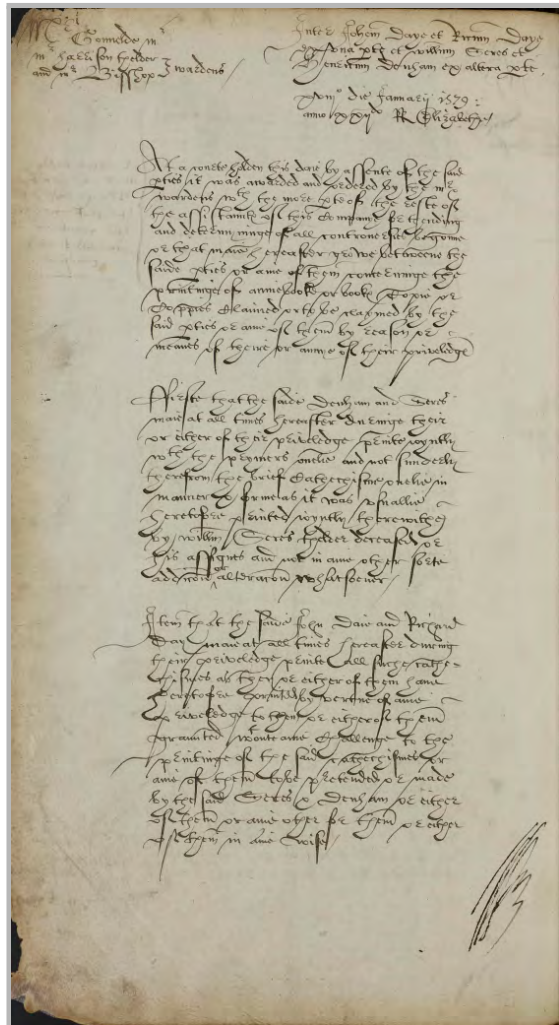 mr Gunnelde mr
mr harrison thelder
and mr Bisshop } wardens
Inter Johem Daye et Ricum Daye
ex vna pte et willm Seres et
Henricum Denham ex altera pte.
xviijo die Januarij 1579:
anno xxijdo R Elizabethe
At a courte holden this daie by assente of the said
pties it was awarded and ordered by the mr
wardens wth the more pte of the reste of
the assistants of this Company for thending
and determininge of all controuersies begonne
or that maie hereafter growe betweene the
saide pties or anie of them concerninge the
printinge of anie booke or books Copie or
Coppies Claimed or to be claymed by the
said pties or anie of them by reason or
meanes of theire or anie of their priveledge
Firste that the saide Denham and Seres
maie at all times hereafter duringe their
or either of their priveledge printe ioyntly
wth the prymers onelie and not sunderly
therefrom the brief Cathechisme onelie in
manner & forme as it was vsuallie
heretofore printed ioyntly therewith
by willm Seres thelder deceased or
his assignes and not in anie other sorte
addicon or alteracon whatsoever /
Item that the saide John Daie and Richard
Day maie at all times hereafter during
their priveledge printe all suche cathe-
chismes as they or either of them haue
heretofore printed by vertue of anie
priveledge to them or either of them
graunted wthoute anie Challenge to the
printinge of the said cathechismes or
anie of them to be pretended or made
by the said Seres & Denham or either
of them or anie other for them or either
of them in anie wise /